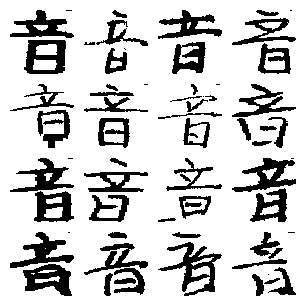 音音音音
音音音音
音音音音
音音音音